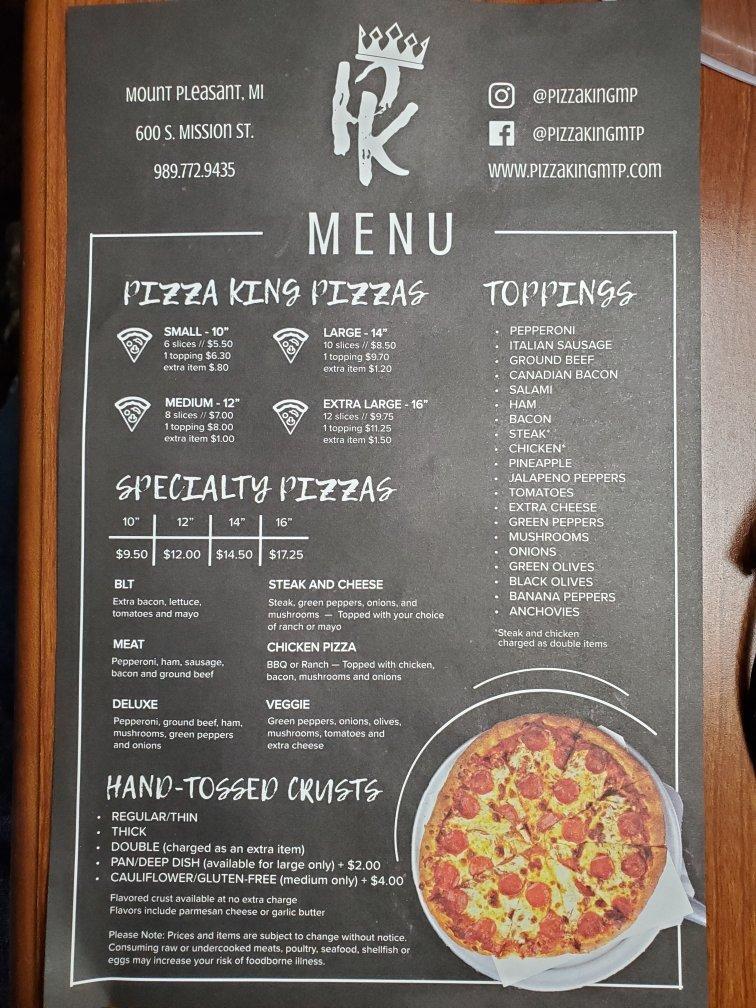 MOUNT PLEASANT, MI
600 S. MISSION ST.
989.772.9435
PK
@PIZZAKINGMP
@PIZZAKINGMTP
WWW.PIZZAKINGMTP.COM
MENU
PIZZA KING PIZZAS
SMALL - 10"
6 slices // $5.50
1 topping $6.30
extra item $.80
LARGE - 14"
10 slices // $8.50
1 topping $9.70
extra item $1.20
MEDIUM - 12"
8 slices // $7.00
1 topping $8.00
extra item $1.00
EXTRA LARGE - 16"
12 slices // $9.75
1 topping $11.25
extra item $1.50
SPECIALTY PIZZAS
10" 12" 14" 16"
$9.50 $12.00 $14.50 $17.25
BLT
Extra bacon, lettuce,
tomatoes and mayo
STEAK AND CHEESE
Steak, green peppers, onions, and
mushrooms — Topped with your choice
of ranch or mayo
MEAT
Pepperoni, ham, sausage,
bacon and ground beef
CHICKEN PIZZA
BBQ or Ranch — Topped with chicken,
bacon, mushrooms and onions
DELUXE
Pepperoni, ground beef, ham,
mushrooms, green peppers
and onions
VEGGIE
Green peppers, onions, olives,
mushrooms, tomatoes and
extra cheese
HAND-TOSSED CRUSTS
• REGULAR/THIN
• THICK
• DOUBLE (charged as an extra item)
• PAN/DEEP DISH (available for large only) + $2.00
• CAULIFLOWER/GLUTEN-FREE (medium only) + $4.00
Flavored crust available at no extra charge
Flavors include parmesan cheese or garlic butter
Please Note: Prices and items are subject to change without notice.
Consuming raw or undercooked meats, poultry, seafood, shellfish or
eggs may increase your risk of foodborne illness.
TOPPINGS
• PEPPERONI
• ITALIAN SAUSAGE
• GROUND BEEF
• CANADIAN BACON
• SALAMI
• HAM
• BACON
• STEAK*
• CHICKEN*
• PINEAPPLE
• JALAPENO PEPPERS
• TOMATOES
• EXTRA CHEESE
• GREEN PEPPERS
• MUSHROOMS
• ONIONS
• GREEN OLIVES
• BLACK OLIVES
• BANANA PEPPERS
• ANCHOVIES
*Steak and chicken
charged as double items